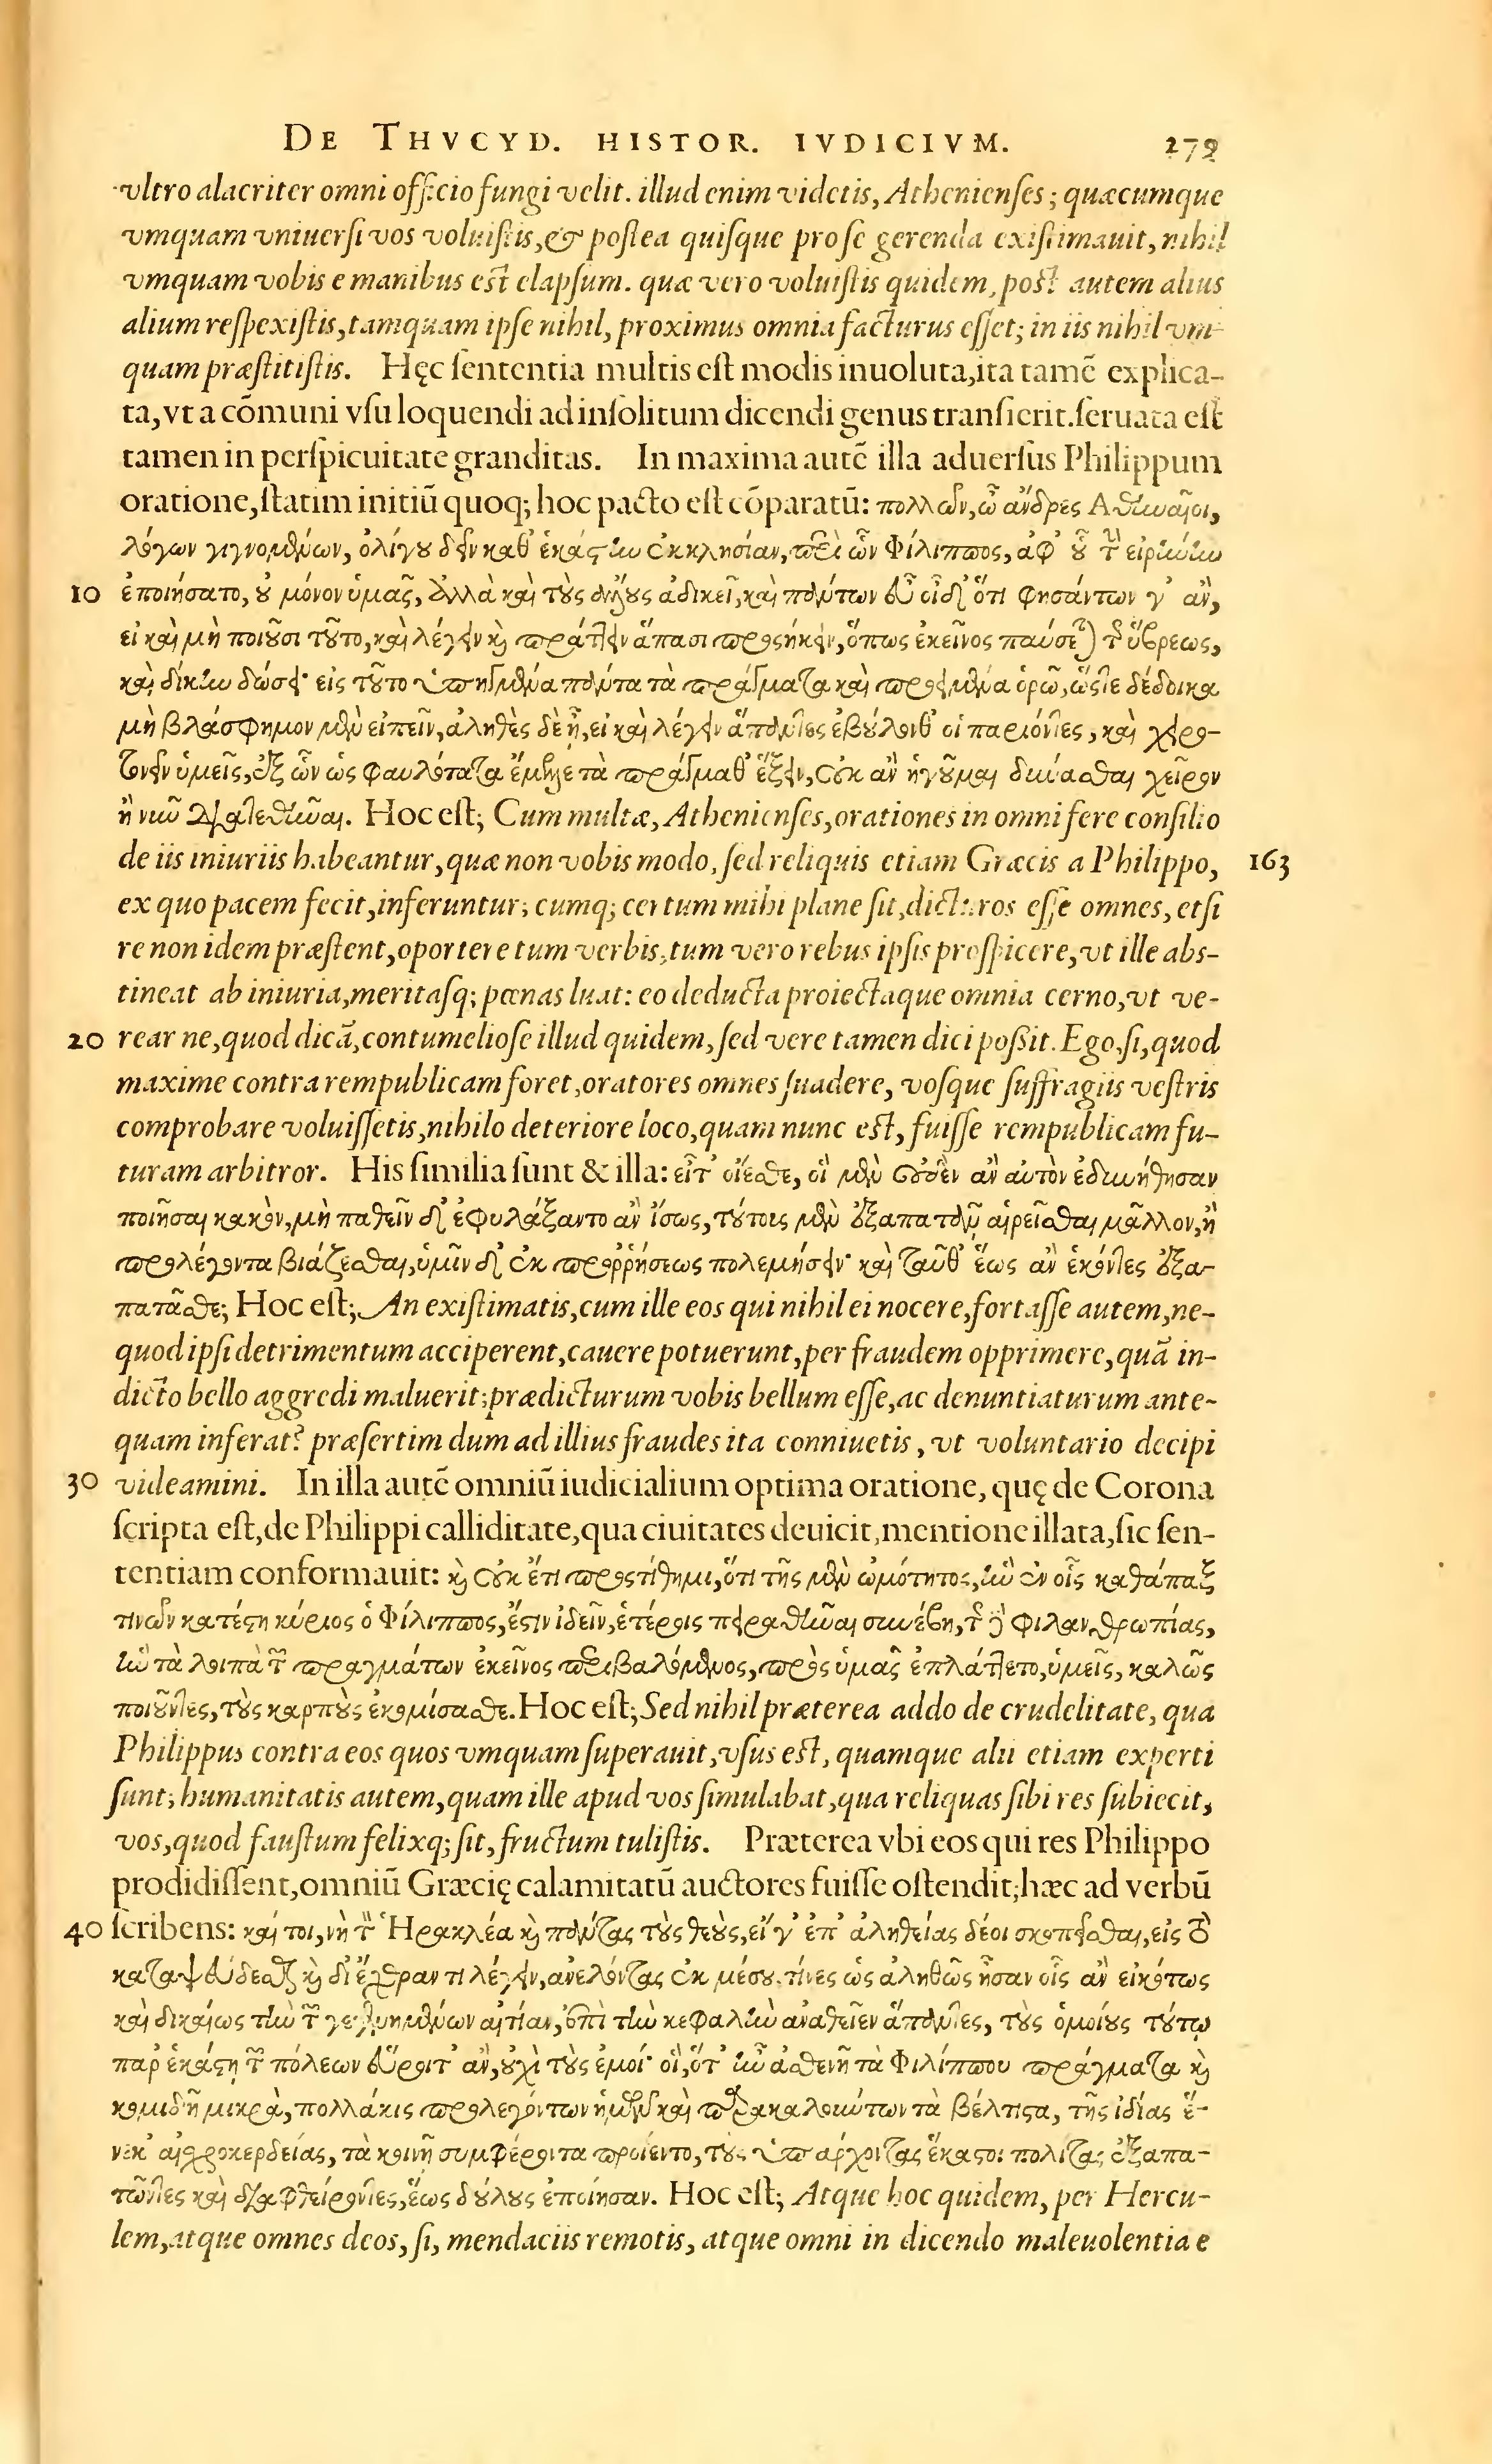 DE THVCYD. HISTOR. IVDICIVM. 279
vltro alacriter omni officio fungi velit. illud enim videtis, Athenienses; quæcumque
vmquam vniuersi vos voluistis, & postea quisque pro se gerenda existimauit, nihil
vmquam vobis e manibus est elapsum. quæ vero voluistis quidem, post autem alius
alium respexistis, tamquam ipse nihil, proximus omnia facturus esset; in iis nihil vm-
quam præstitistis. Hęc sententia multis est modis inuoluta, ita tamē explica-
ta, vt a cōmuni vsu loquendi ad insolitum dicendi genus transierit. seruata est
tamen in perspicuitate granditas. In maxima autē illa aduersus Philippum
oratione, statim initiū quoq; hoc pacto est cōparatū: πολλῶν, ὦ ἄνδρες Ἀθηναῖοι,
λόγων γιγνομένων, ὀλίγου δεῖν καθ' ἑκάστην ἐκκλησίαν, περὶ ὧν Φίλιππος, ἀφ' οὗ τὴν εἰρήνην
10 ἐποιήσατο, οὐ μόνον ὑμᾶς, ἀλλὰ καὶ τοὺς ἄλλους ἀδικεῖ, καὶ πάντων εὖ οἶδ' ὅτι φησάντων γ' ἂν,
εἰ καὶ μὴ ποιοῦσι τοῦτο, καὶ λέγειν καὶ πράττειν ἅπασι προσήκειν, ὅπως ἐκεῖνος παύσεται τῆς ὕβρεως,
καὶ δίκην δώσει· εἰς τοῦτο ὑπηγμένα πάντα τὰ πράγματα καὶ προειμένα ὁρῶ, ὥστε δέδοικα
μὴ βλάσφημον μὲν εἰπεῖν, ἀληθὲς δὲ ᾖ, εἰ καὶ λέγειν ἅπαντες ἐβούλονθ' οἱ παριόντες, καὶ χειρο-
τονεῖν ὑμεῖς, ἐξ ὧν ὡς φαυλότατα ἔμελλε τὰ πράγμαθ' ἕξειν, οὐκ ἂν ἡγοῦμαι δύνασθαι χεῖρον
ἢ νῦν διατεθῆναι. Hoc est; Cum multæ, Athenienses, orationes in omni fere consilio
de iis iniuriis habeantur, quæ non vobis modo, sed reliquis etiam Græcis a Philippo, 163
ex quo pacem fecit, inferuntur; cumq; certum mihi plane sit, dicturos esse omnes, etsi
re non idem præstent, oportere tum verbis, tum vero rebus ipsis prospicere, vt ille abs-
tineat ab iniuria, meritasq; pœnas luat: eo deducta proiectaque omnia cerno, vt ve-
20 rear ne, quod dicā, contumeliose illud quidem, sed vere tamen dici possit. Ego, si, quod
maxime contra rempublicam foret, oratores omnes suadere, vosque suffragiis vestris
comprobare voluissetis, nihilo deteriore loco, quam nunc est, fuisse rempublicam fu-
turam arbitror. His similia sunt & illa: εἶτ' οἴεσθε, οἳ μὲν οὐδὲν ἂν αὐτὸν ἐδυνήθησαν
ποιῆσαι κακὸν, μὴ παθεῖν δ' ἐφυλάξαντο ἂν ἴσως, τούτοις μὲν ἐξαπατᾶν αἱρεῖσθαι μᾶλλον, ἢ
προλέγοντα βιάζεσθαι, ὑμῖν δ' ἐκ προρρήσεως πολεμήσειν· καὶ ταῦθ' ἕως ἂν ἑκόντες ἐξα-
πατᾶσθε; Hoc est; An existimatis, cum ille eos qui nihil ei nocere, fortasse autem, ne-
quod ipsi detrimentum acciperent, cauere potuerunt, per fraudem opprimere, quā in-
dicto bello aggredi maluerit; prædicturum vobis bellum esse, ac denuntiaturum ante-
quam inferat? præsertim dum ad illius fraudes ita conniuetis, vt voluntario decipi
30 videamini. In illa autē omniū iudicialium optima oratione, quę de Corona
scripta est, de Philippi calliditate, qua ciuitates deuicit, mentione illata, sic sen-
tentiam conformauit: καὶ οὐκ ἔτι προστίθημι, ὅτι τῆς μὲν ὠμότητος, ἣν ἐν οἷς καθάπαξ
τινῶν κατέστη κύριος ὁ Φίλιππος, ἔστιν ἰδεῖν, ἑτέροις πειραθῆναι συνέβη, τῆς δὲ φιλανθρωπίας,
ἣν τὰ λοιπὰ τῶν πραγμάτων ἐκεῖνος περιβαλόμενος, πρὸς ὑμᾶς ἐπλάττετο, ὑμεῖς, καλῶς
ποιοῦντες, τοὺς καρποὺς ἐκομίσασθε. Hoc est; Sed nihil præterea addo de crudelitate, qua
Philippus contra eos quos vmquam superauit, vsus est, quamque alii etiam experti
sunt; humanitatis autem, quam ille apud vos simulabat, qua reliquas sibi res subiecit,
vos, quod faustum felixq; sit, fructum tulistis. Præterea vbi eos qui res Philippo
prodidissent, omniū Græcię calamitatū auctores fuisse ostendit; hæc ad verbū
40 scribens: καί τοι, νὴ τὸν Ἡρακλέα καὶ πάντας τοὺς θεοὺς, εἴ γ' ἐπ' ἀληθείας δέοι σκοπεῖσθαι, εἰς τὸ
καταψεύδεσθαι καὶ δι' ἔχθραν τι λέγειν, ἀνελόντας ἐκ μέσου. τίνες ὡς ἀληθῶς ἦσαν οἷς ἂν εἰκότως
καὶ δικαίως τὴν τῶν γεγενημένων αἰτίαν, ἐπὶ τὴν κεφαλὴν ἀναθεῖεν ἅπαντες, τοὺς ὁμοίους τούτῳ
παρ' ἑκάστῃ τῶν πόλεων εὕροιτ' ἂν, οὐχὶ τοὺς ἐμοί· οἳ, ὅτ' ἦν ἀσθενῆ τὰ Φιλίππου πράγματα καὶ
κομιδῆ μικρὰ, πολλάκις προλεγόντων ἡμῶν καὶ παρακαλούντων τὰ βέλτιστα, τῆς ἰδίας ἕ-
νεκ' αἰσχροκερδείας, τὰ κοινῇ συμφέροντα προΐεντο, τοὺς ὑπάρχοντας ἕκαστοι πολίτας ἐξαπα-
τῶντες καὶ διαφθείροντες, ἕως δούλους ἐποίησαν. Hoc est; Atque hoc quidem, per Hercu-
lem, atque omnes deos, si, mendaciis remotis, atque omni in dicendo maleuolentia e